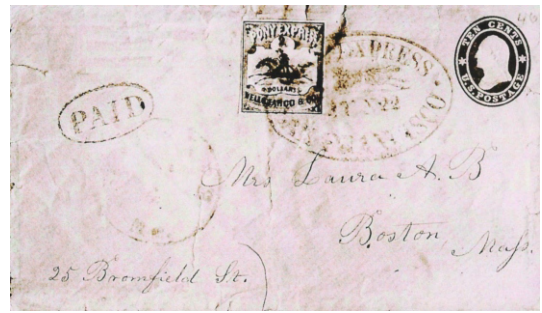 PONY EXPRESS
2 DOLLARS
WELLS FARGO & CO
ADRESS
22
SAN FRANCISCO
TEN CENTS
U.S. POSTAGE
PAID
Mrs Laura A. B
Boston,
Mass.
25 Bromfield St.